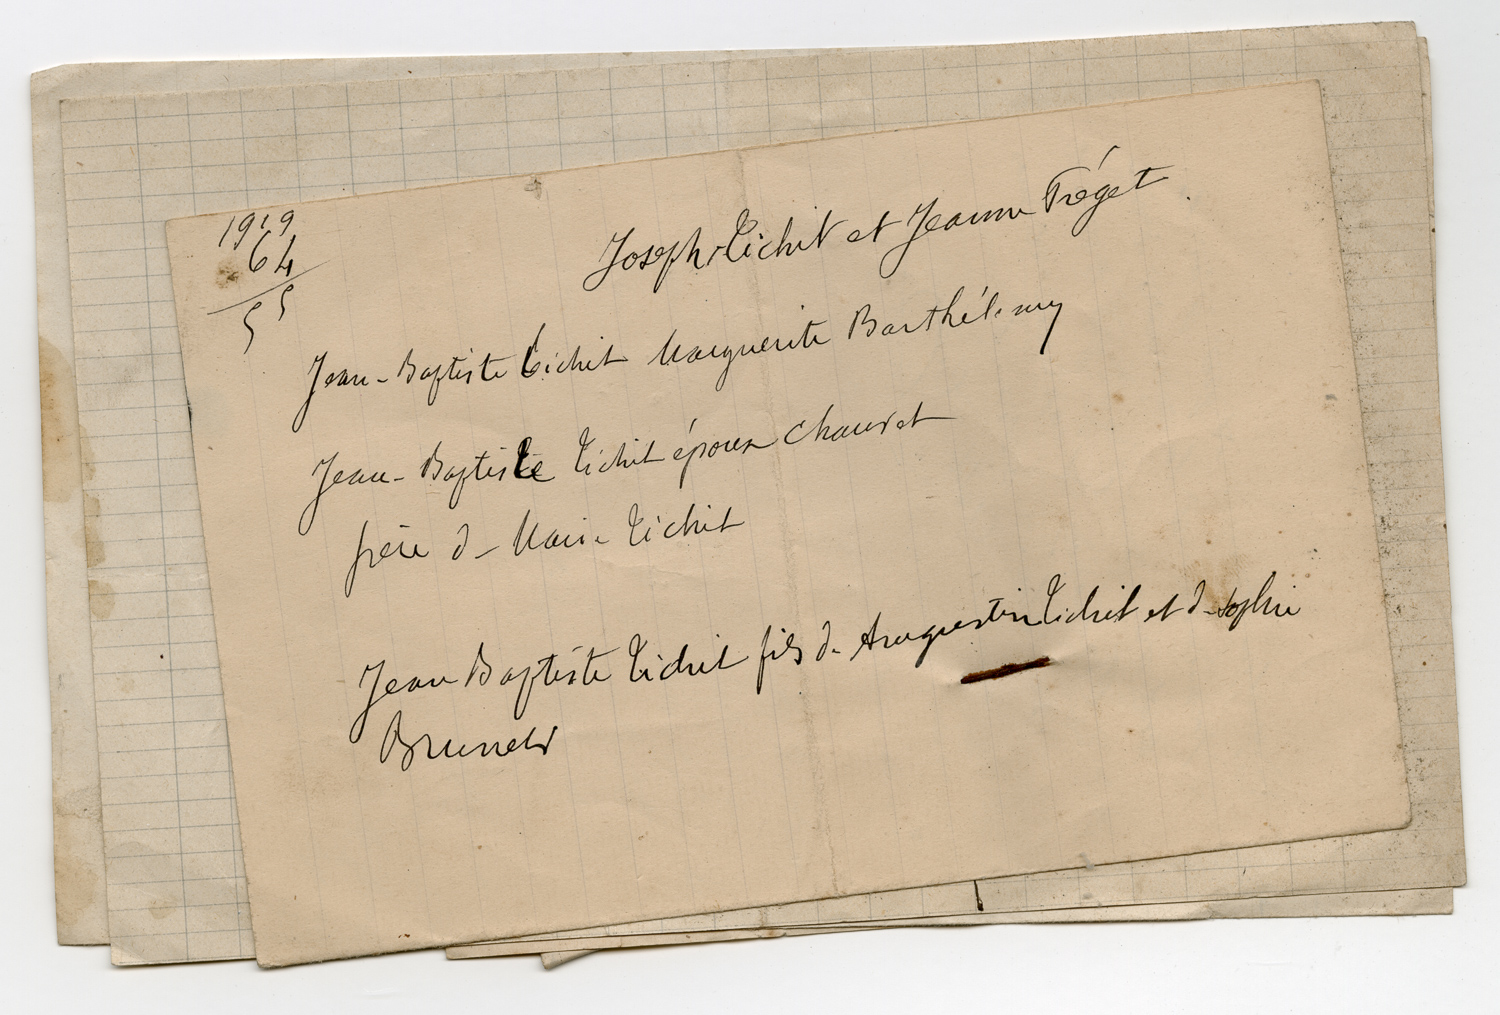 1919
64
55
Joseph Tichit et Jeanne Tréget
Jean-Baptiste Tichit Marguerite Barthélemy
Jean-Baptiste Tichit époux Chauvet
frère de Marie Tichit
Jean Baptiste Tichit fils de Auguestin Tichit et de Sophie
Brunet